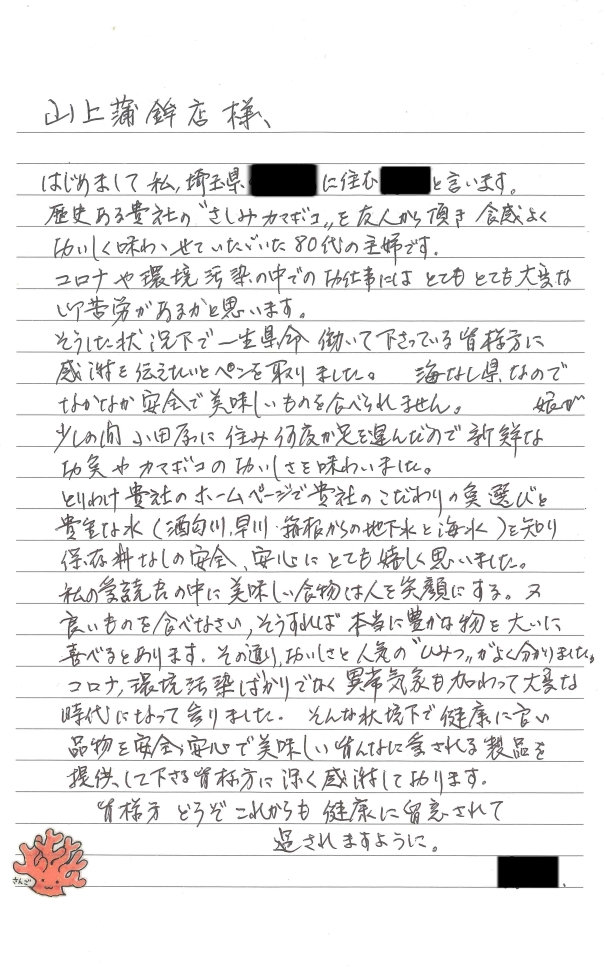 山上蒲鉾店様、
はじめまして私、埼玉県 に住む と言います。
歴史ある貴社の"さしみカマボコ"を友人から頂き食感よく
おいしく味わせていただいた80代の主婦です。
コロナや環境汚染の中でのお仕事にはとてもとても大変な
ご苦労があるかと思います。
そうした状況下で一生懸命働いて下さっている皆様方に
感謝を伝えたいとペンを取りました。 海なし県なので
なかなか安全で美味しいものを食べられません。 娘が
少しの間小田原に住み何度か足を運んだので新鮮な
お魚やカマボコのおいしさを味わいました。
とりわけ貴社のホームページで貴社のこだわりの魚選びと
貴重な水(酒匂川、早川・箱根からの地下水と海水)を知り
保存料なしの安全、安心にとても嬉しく思いました。
私の愛読書の中に美味しい食物は人を笑顔にする。又
良いものを食べなさい、そうすれば本当に豊かな物を大いに
喜べるとあります。その通り、おいしさと人気の"ひみつ"がよく分かりました。
コロナ、環境汚染ばかりでなく異常気象も加わって大変な
時代になって参りました。 そんな状境下で健康に良い
品物を安全、安心で美味しい皆んなに愛される製品を
提供して下さる皆様方に深く感謝しております。
皆様方 どうぞこれからも健康に留意されて
過されますように。
さんご